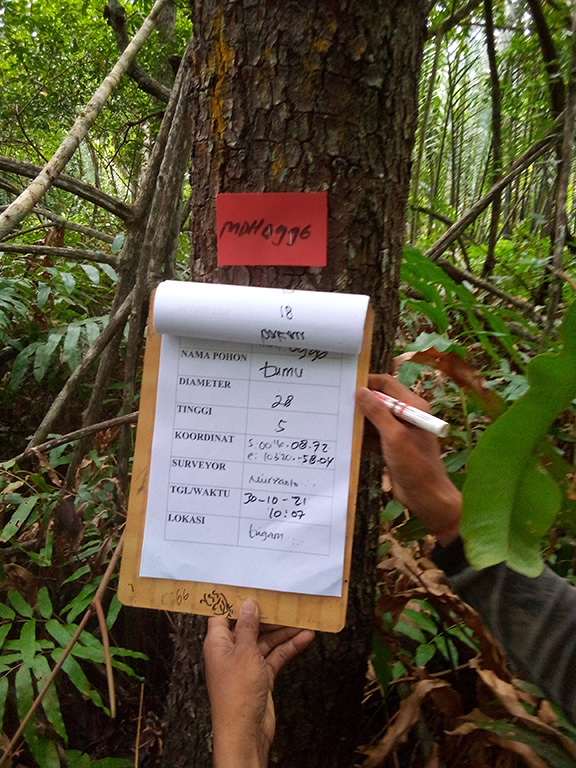 MDH0996
18
NAMA POHON tumu
DIAMETER 28
TINGGI 5
KOORDINAT S: 00°16.08.72
e: 10320.-58.04
SURVEYOR
TGL/WAKTU 30-10-21
10:07
LOKASI